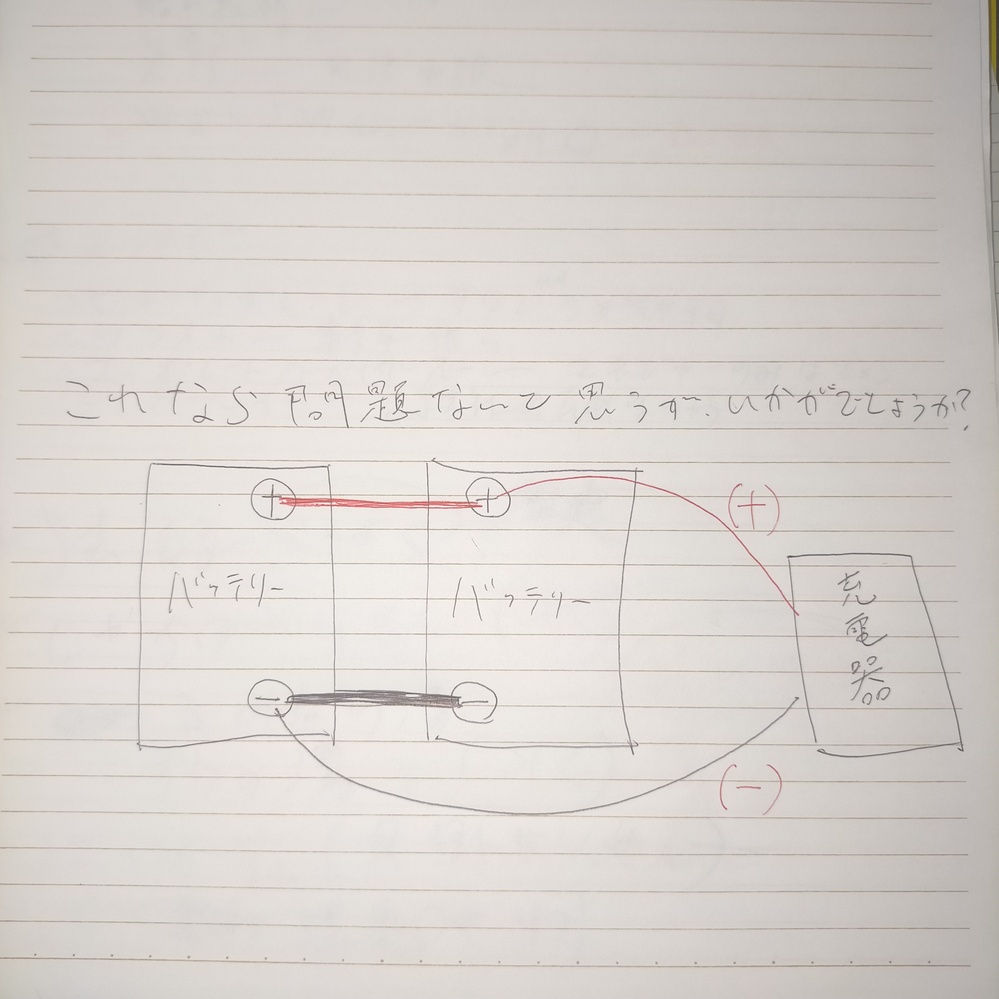 これなら問題ないと思うが、いかがでしょうか?
+ + (+)
バッテリー バッテリー 充電器
- - (-)